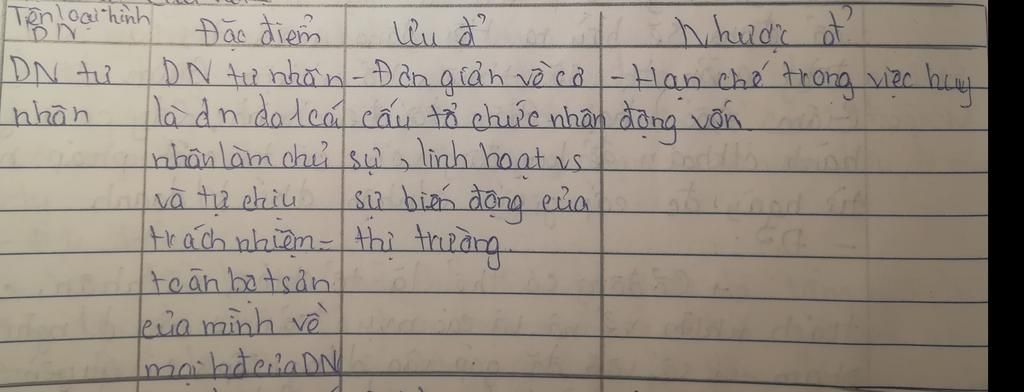 Tên loại hình DN | Đặc điểm | Ưu đ' | Nhược đ'
DN tư | DN tư nhân | - Đơn giản về cơ | - Hạn chế trong việc huy
nhân | là dn do 1 cá | cấu tổ chức nhân | động vốn
nhân làm chủ | sự, linh hoạt vs
và tự chịu | sự biến động của
trách nhiệm = | thị trường
toàn bộ tsản
của mình về
mọi hđ của DN